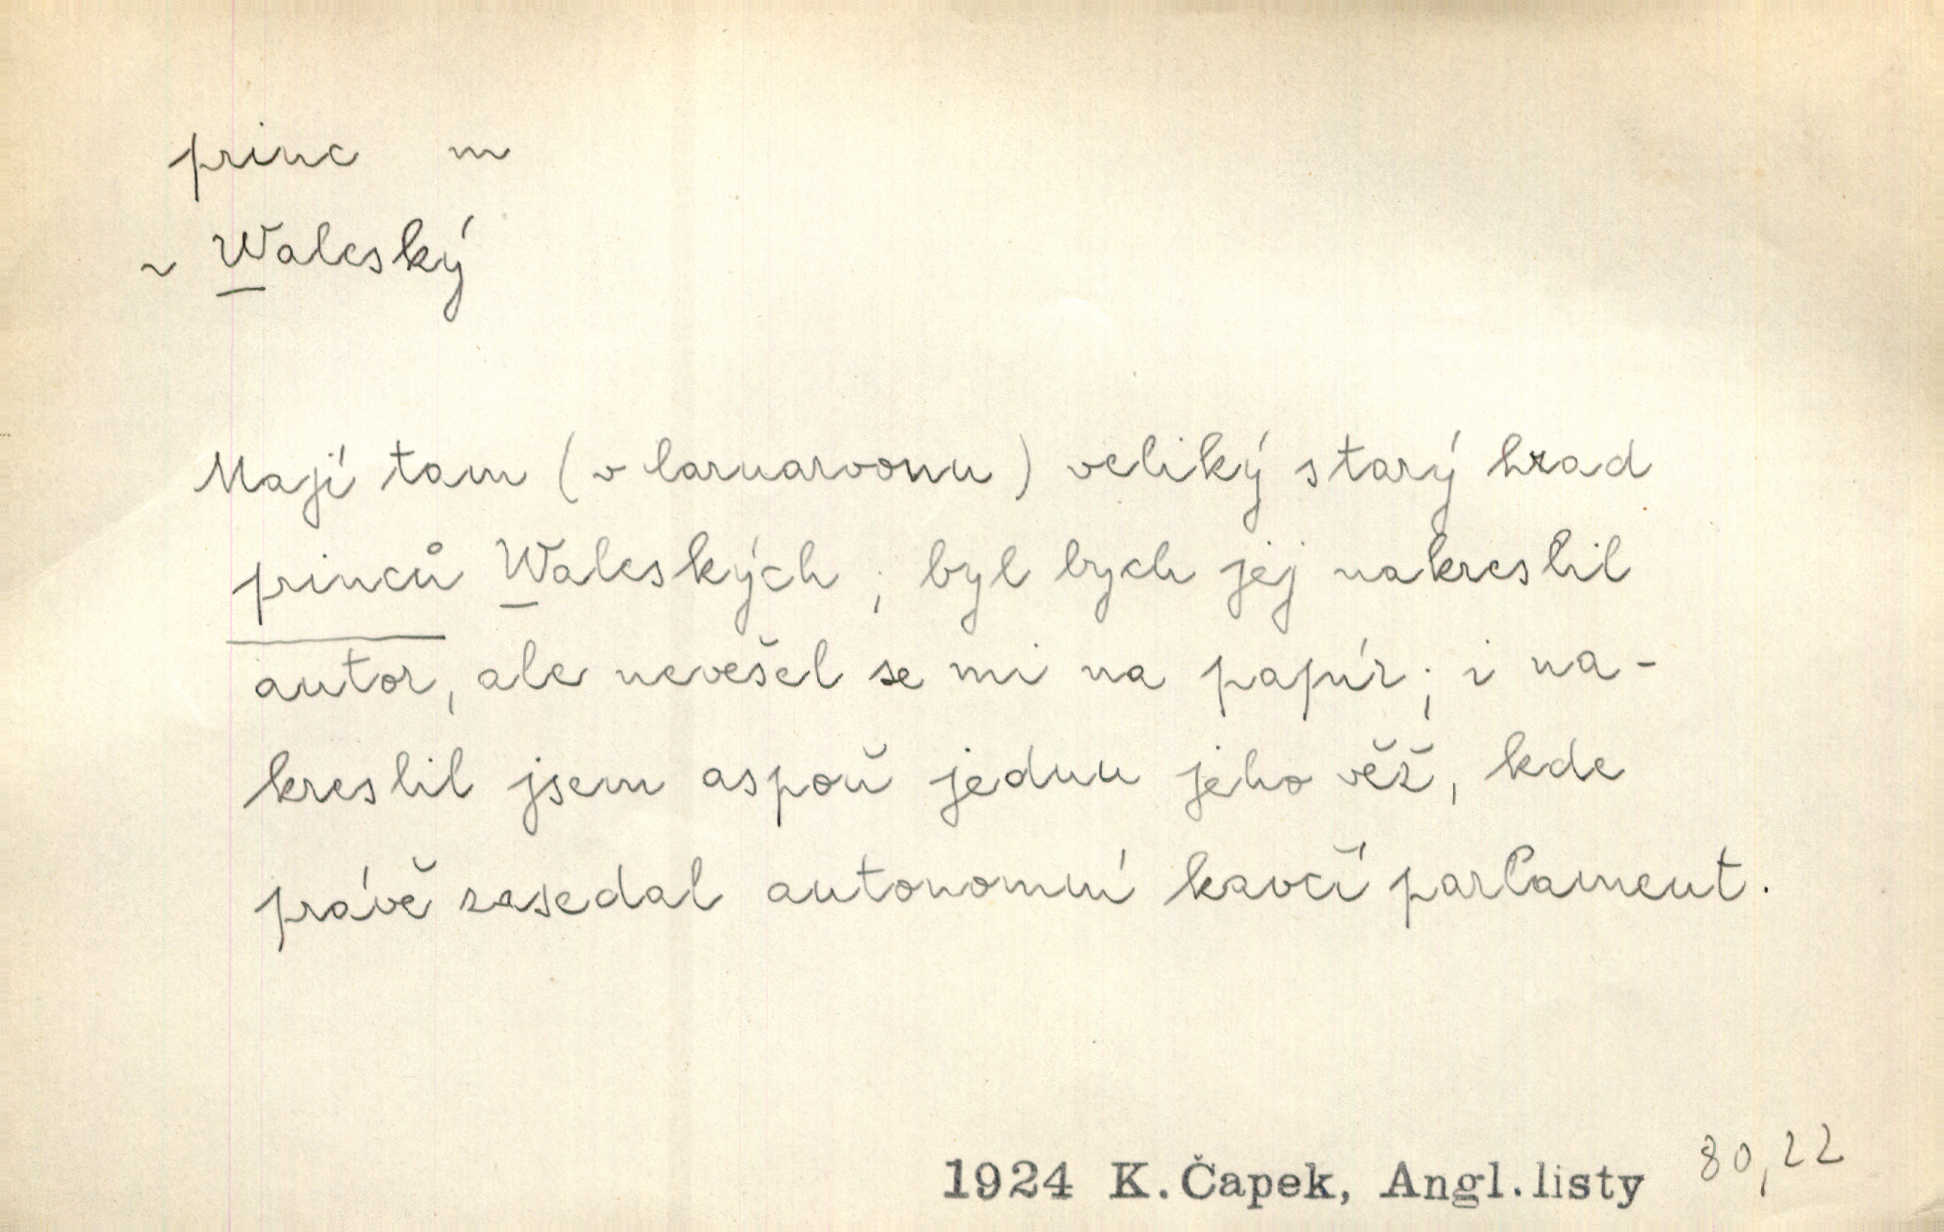 princ m
~ Waleský
Mají tam (v Carnarvonu) veliký starý hrad
princů Waleských; byl bych jej nakreslil
autor, ale nevešel se mi na papír; i na-
kreslil jsem aspoň jednu jeho věž, kde
právě zasedal autonomní kavčí parlament.
1924 K.Čapek, Angl.listy 80,22